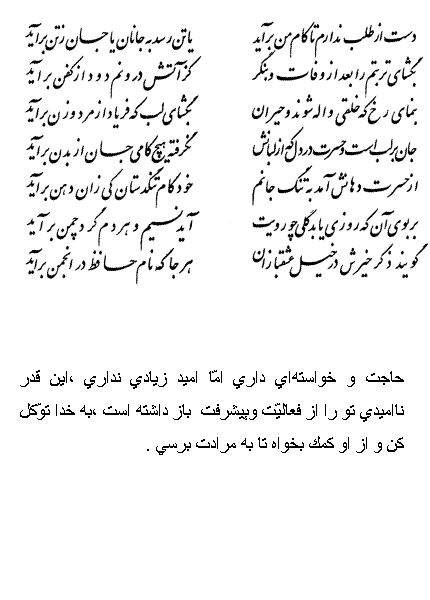 دست از طلب ندارم تا کام من برآید یا تن رسد به جانان یا جان ز تن برآید
بگشای تربتم را بعد از وفات و بنگر کز آتش درونم دود از کفن برآید
بنمای رخ که خلقی واله شوند و حیران بگشای لب که فریاد از مرد و زن برآید
جان بر لب است و حسرت در دل که از لبانش نگرفته هیچ کامی جان از بدن برآید
از حسرت دهانش آمد به تنگ جانم خود کام تنگدستان کی زان دهن برآید
بر بوی آن که روزی یابد گلی چو رویت آید نسیم و هر دم گرد چمن برآید
گویند ذکر خیرش در خیل عشقبازان هر جا که نام حافظ در انجمن برآید
حاجت و خواسته‌اي داري امّا اميد زيادي نداري ،اين قدر
نااميدي تو را از فعاليّت وپيشرفت باز داشته است ،به خدا توّكل
كن و از او كمك بخواه تا به مرادت برسي .